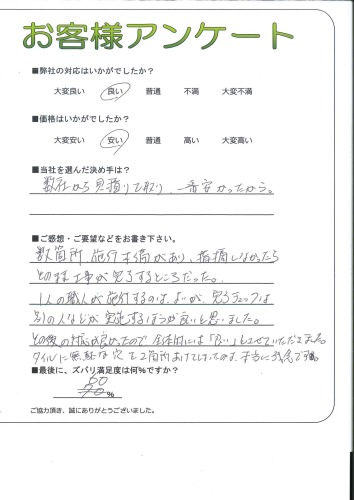 お客様アンケート
■弊社の対応はいかがでしたか？
大変良い　良い　普通　不満　大変不満
■価格はいかがでしたか？
大変安い　安い　普通　高い　大変高い
■当社を選んだ決め手は？
数社から見積りを取り、一番安かったから。
■ご感想・ご要望などをお書き下さい。
数箇所、施行不備があり、指摘しなかったら
そのまま工事が完了するところだった。
1人の職人が施行するのは、よいが、完了チェックは
別の人などが実施するほうが良いと思いました。
その後の対応が良かったので、全体的には「良い」とさせていただきました。
タイルに無駄な穴を2箇所あけてしまったのは、本当に残念です。
■最後に、ズバリ満足度は何%ですか？
60
70%
ご協力頂き、誠にありがとうございました。